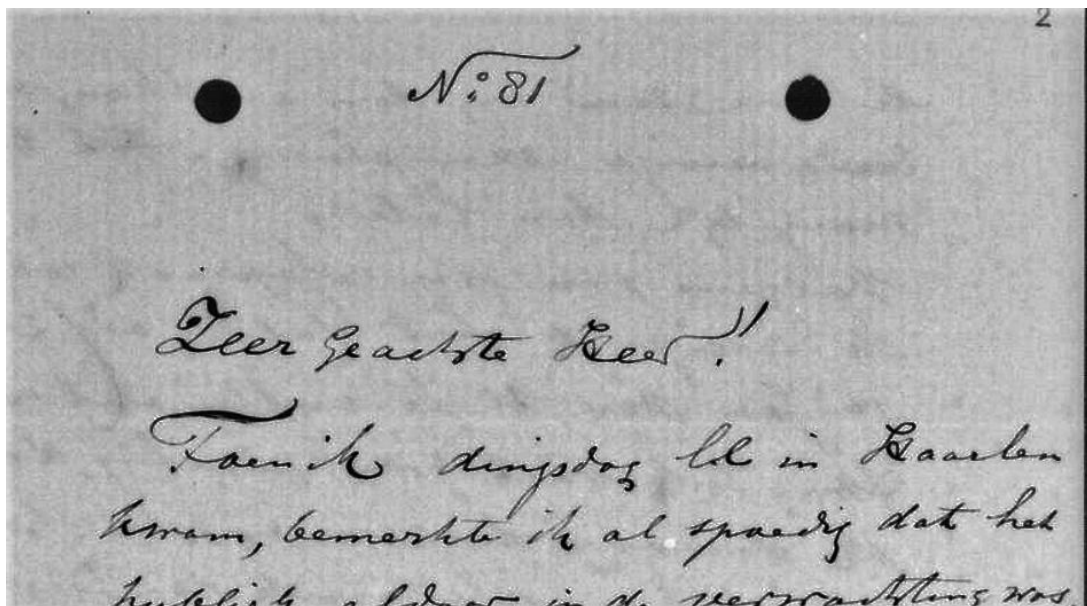 2
No: 81
Zeer Geachte Heer!
Toen ik dingsdag ll in Haarlem
kwam, bemerkte ik al spoedig dat het
publiek aldaar in de verwachting was,